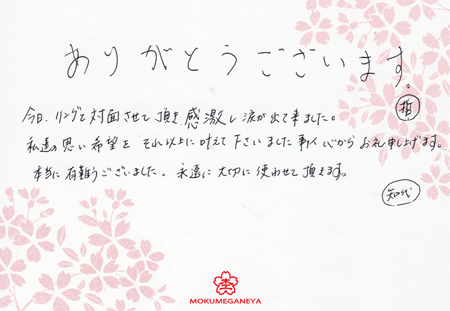 ありがとうございます。
今日、リングと対面させて頂き感激し涙が出て来ました。
哲
私達の思い希望を それ以上に叶えて下さいました事心から お礼申し上げます。
本当に有難うございました。永遠に大切に使わせて頂きます。
知代
MOKUMEGANEYA